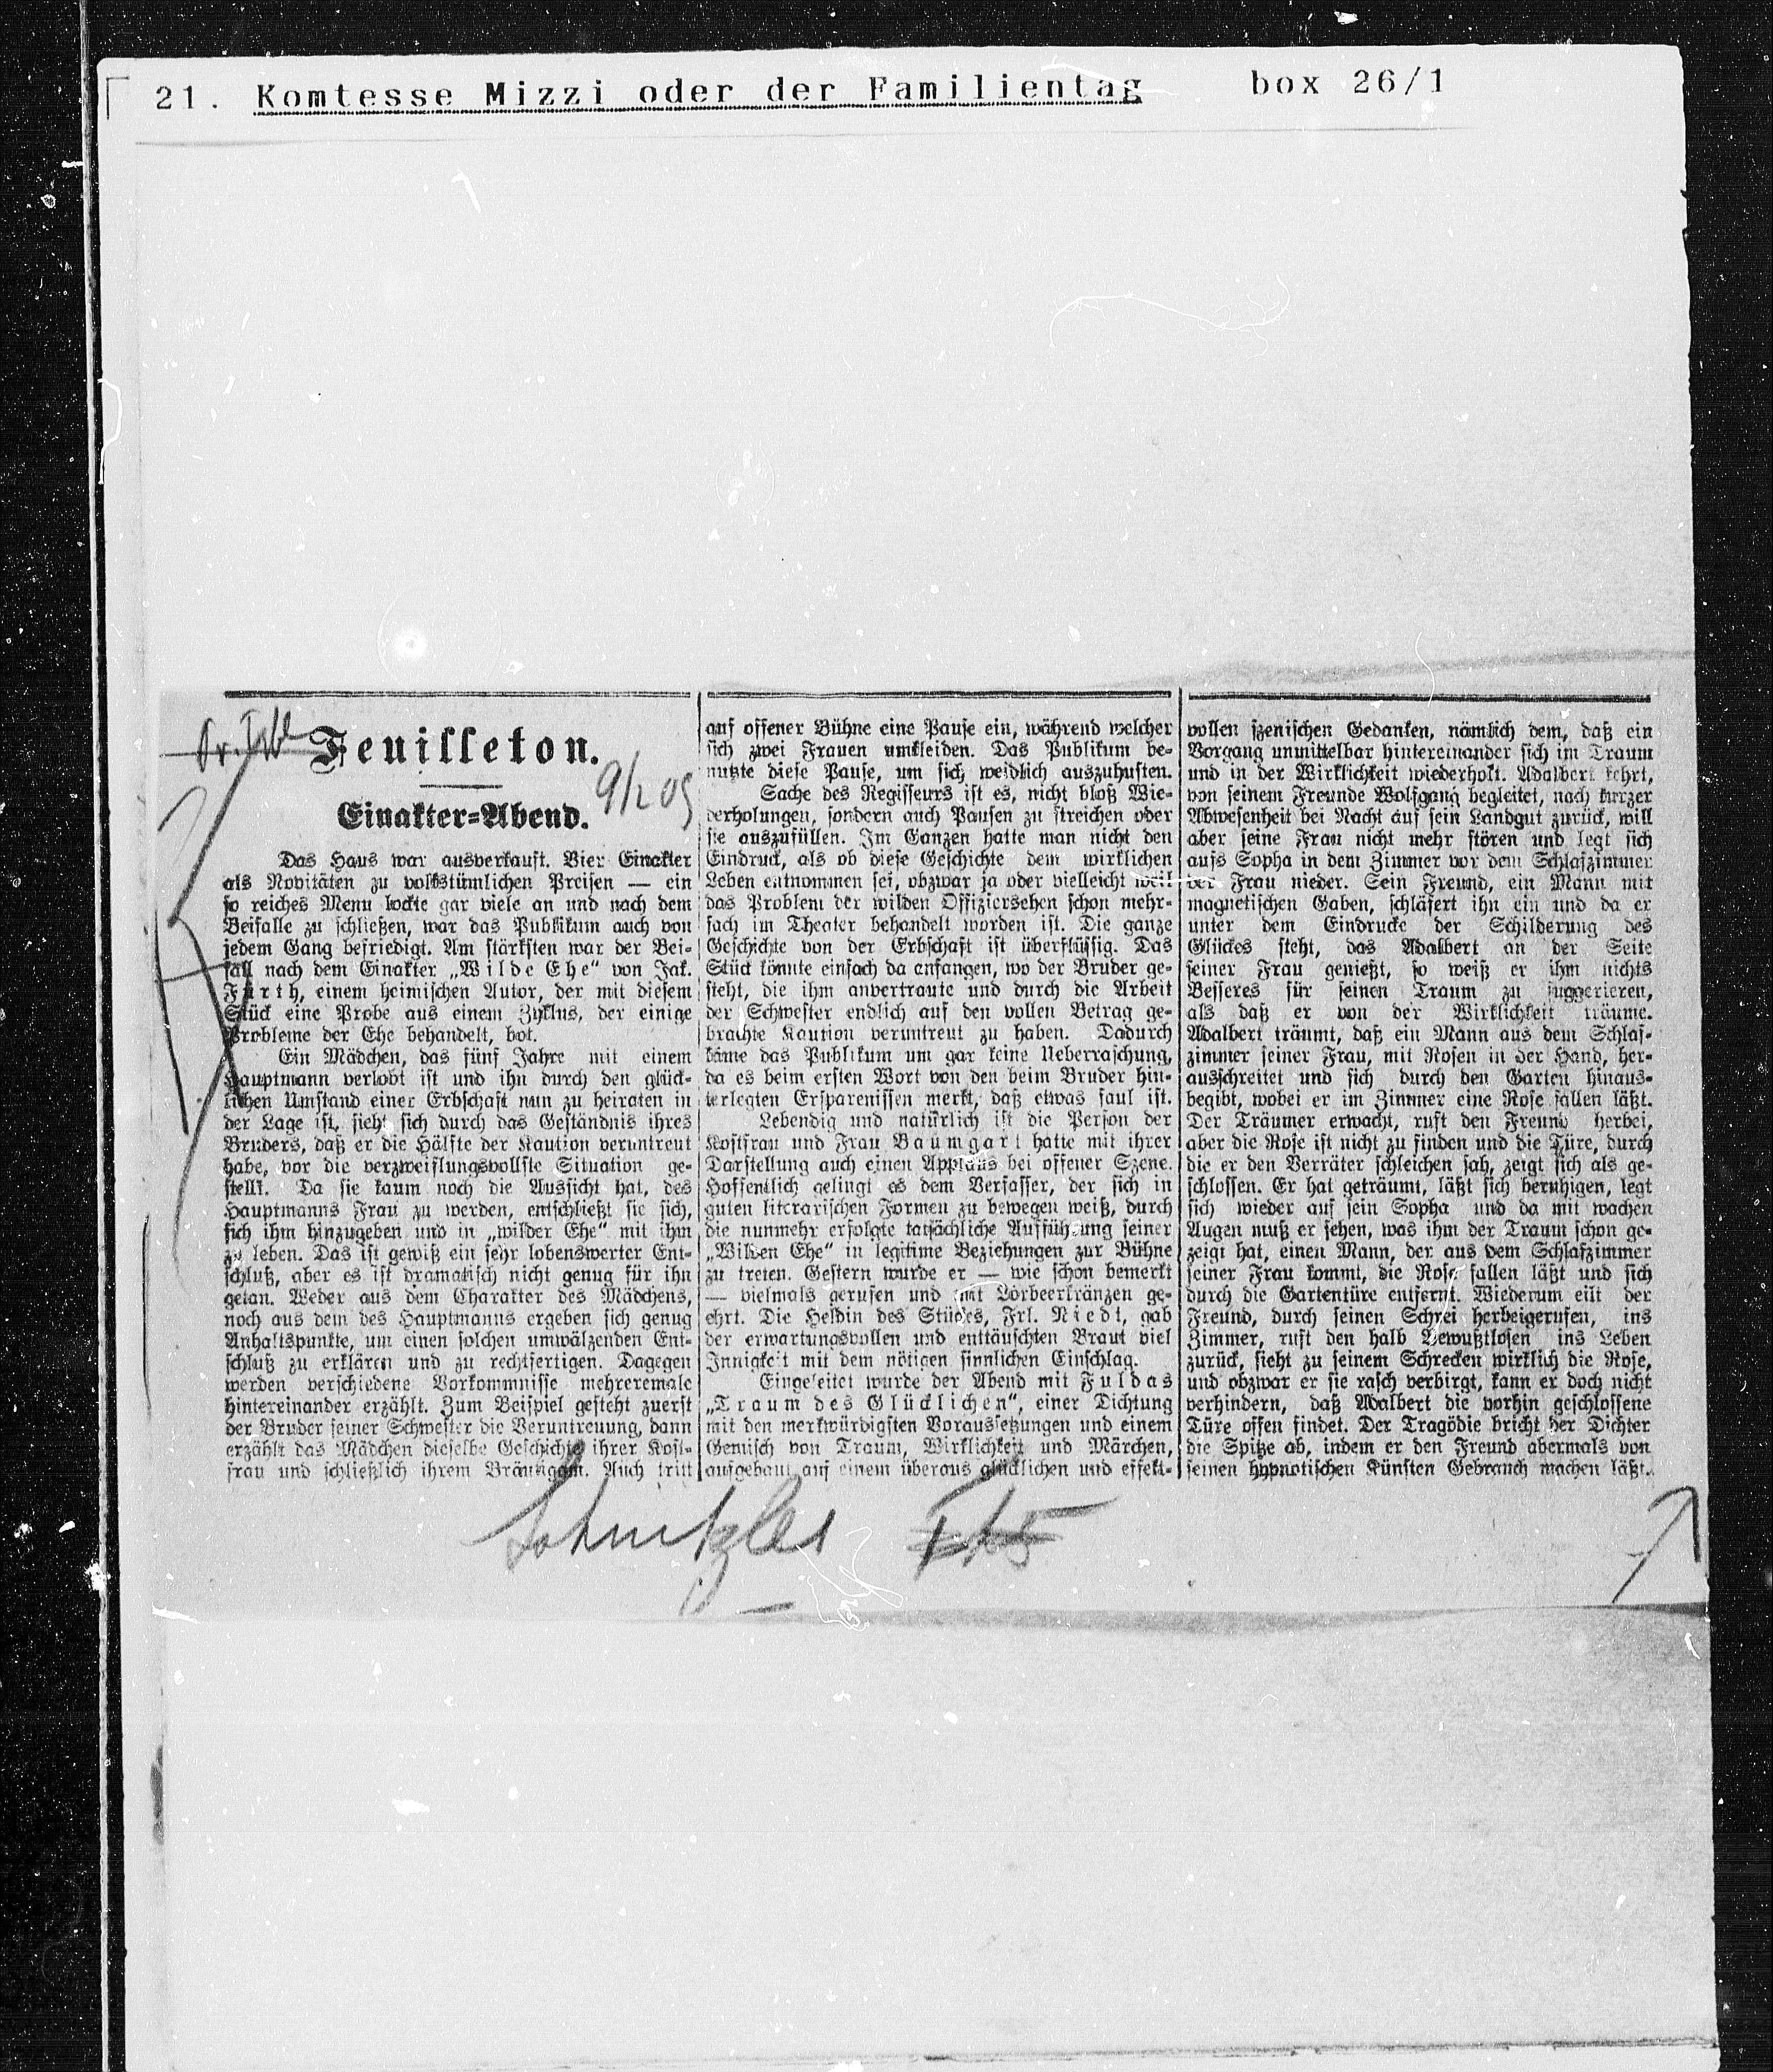 21. Komtesse Mizzi oder der Familientag box 26/1
Feuilleton.
9/2 09
Einakter-Abend.
Das Haus war ausverkauft. Vier Einakter
als Novitäten zu volkstümlichen Preisen — ein
so reiches Menu lockte gar viele an und nach dem
Beifalle zu schließen, war das Publikum auch von
jedem Gang befriedigt. Am stärksten war der Bei-
fall nach dem Einakter „Wilde Ehe“ von Jak.
Fürth, einem heimischen Autor, der mit diesem
Stück eine Probe aus einem Zyklus, der einige
Probleme der Ehe behandelt, bot.
Ein Mädchen, das fünf Jahre mit einem
Hauptmann verlobt ist und ihn durch den glück-
lichen Umstand einer Erbschaft nun zu heiraten in
der Lage ist, sieht sich durch das Geständnis ihres
Bruders, daß er die Hälfte der Kaution veruntreut
habe, vor die verzweiflungsvollste Situation ge-
stellt. Da sie kaum noch die Aussicht hat, des
Hauptmanns Frau zu werden, entschließt sie sich,
sich ihm hinzugeben und in „wilder Ehe“ mit ihm
zu leben. Das ist gewiß ein sehr lobenswerter Ent-
schluß, aber es ist dramatisch nicht genug für ihn
getan. Weder aus dem Charakter des Mädchens,
noch aus dem des Hauptmanns ergeben sich genug
Anhaltspunkte, um einen solchen umwälzenden Ent-
schluß zu erklären und zu rechtfertigen. Dagegen
werden verschiedene Vorkommnisse mehreremale
hintereinander erzählt. Zum Beispiel gesteht zuerst
der Bruder seiner Schwester die Veruntreuung, dann
erzählt das Mädchen dieselbe Geschichte ihrer Kost-
frau und schließlich ihrem Bräutigam. Auch tritt
auf offener Bühne eine Pause ein, während welcher
sich zwei Frauen umkleiden. Das Publikum be-
nutzte diese Pause, um sich weidlich auszuhusten.
Sache des Regisseurs ist es, nicht bloß Wie-
derholungen, sondern auch Pausen zu streichen oder
sie auszufüllen. Im Ganzen hatte man nicht den
Eindruck, als ob diese Geschichte dem wirklichen
Leben entnommen sei, obzwar ja oder vielleicht weil
das Problem der wilden Offiziersehen schon mehr-
fach im Theater behandelt worden ist. Die ganze
Geschichte von der Erbschaft ist überflüssig. Das
Stück könnte einfach da anfangen, wo der Bruder ge-
steht, die ihm anvertraute und durch die Arbeit
der Schwester endlich auf den vollen Betrag ge-
brachte Kaution veruntreut zu haben. Dadurch
käme das Publikum um gar keine Ueberraschung,
da es beim ersten Wort von den beim Bruder hin-
terlegten Ersparenissen merkt, daß etwas faul ist.
Lebendig und natürlich ist die Person der
Kostfrau und Frau Baumgart hatte mit ihrer
Darstellung auch einen Applaus bei offener Szene.
Hoffentlich gelingt es dem Verfasser, der sich in
guten literarischen Formen zu bewegen weiß, durch
die nunmehr erfolgte tatsächliche Aufführung seiner
„Wilden Ehe“ in legitime Beziehungen zur Bühne
zu treten. Gestern wurde er — wie schon bemerkt
— vielmals gerufen und mit Lorbeerkränzen ge-
ehrt. Die Heldin des Stückes, Frl. Niedt, gab
der erwartungsvollen und enttäuschten Braut viel
Innigkeit mit dem nötigen sinnlichen Einschlag.
Eingeleitet wurde der Abend mit Fuldas
„Traum des Glücklichen“, einer Dichtung
mit den merkwürdigsten Voraussetzungen und einem
Gemisch von Traum, Wirklichkeit und Märchen,
aufgebaut auf einem überaus glücklichen und effekt-
vollen szenischen Gedanken, nämlich dem, daß ein
Vorgang unmittelbar hintereinander sich im Traum
und in der Wirklichkeit wiederholt. Adalbert kehrt,
von seinem Freunde Wolfgang begleitet, nach kurzer
Abwesenheit bei Nacht auf sein Landgut zurück, will
aber seine Frau nicht mehr stören und legt sich
aufs Sopha in dem Zimmer vor dem Schlafzimmer
der Frau nieder. Sein Freund, ein Mann mit
magnetischen Gaben, schläfert ihn ein und da er
unter dem Eindrucke der Schilderung des
Glückes steht, das Adalbert an der Seite
seiner Frau genießt, so weiß er ihm nichts
Besseres für seinen Traum zu suggerieren,
als daß er von der Wirklichkeit träume.
Adalbert träumt, daß ein Mann aus dem Schlaf-
zimmer seiner Frau, mit Rosen in der Hand, her-
ausschreitet und sich durch den Garten hinaus-
begibt, wobei er im Zimmer eine Rose fallen läßt.
Der Träumer erwacht, ruft den Freund herbei,
aber die Rose ist nicht zu finden und die Türe, durch
die er den Verräter schleichen sah, zeigt sich als ge-
schlossen. Er hat geträumt, läßt sich beruhigen, legt
sich wieder auf sein Sopha und da mit wachen
Augen muß er sehen, was ihm der Traum schon ge-
zeigt hat, einen Mann, der aus dem Schlafzimmer
seiner Frau kommt, die Rose fallen läßt und sich
durch die Gartentüre entfernt. Wiederum eilt der
Freund, durch seinen Schrei herbeigerufen, ins
Zimmer, ruft den halb Bewußtlosen ins Leben
zurück, sieht zu seinem Schrecken wirklich die Rose,
und obzwar er sie rasch verbirgt, kann er doch nicht
verhindern, daß Adalbert die vorhin geschlossene
Türe offen findet. Der Tragödie bricht der Dichter
die Spitze ab, indem er den Freund abermals von
seinen hypnotischen Künsten Gebrauch machen läßt.
Schnitzler